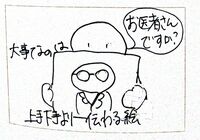 大事なのは
お医者さん
ですか?
上手下手より伝わる絵